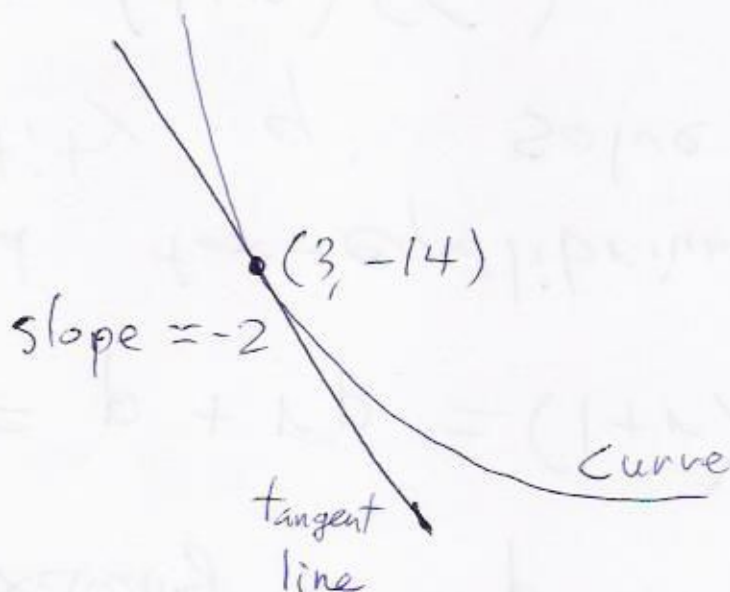 (3, -14)
slope = -2
Curve
tangent
line